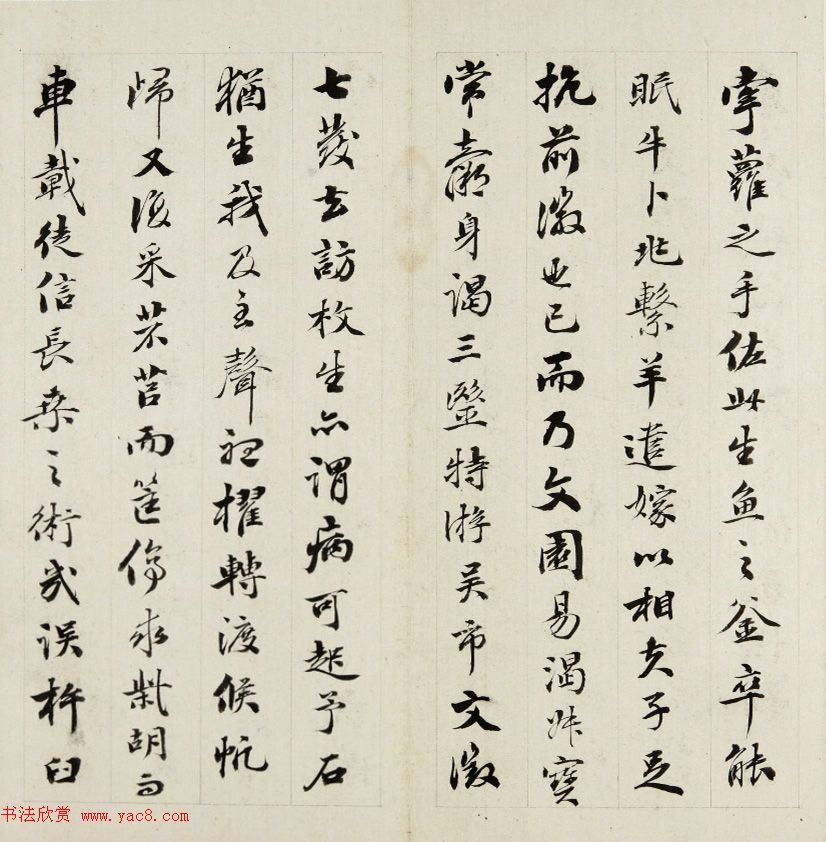 掌蘿之手佐此生魚之釜卒能
眠牛卜兆繫羊遣嫁以相夫子足
抗前徽也已而乃文園易渴妹寶
常虧身謁三醫特游吳市文徵
七發去訪枚生亦謂病可起予石
猶生我及至聲裡櫂轉渡候帆
歸又復采芣苢而筐傷求斷胡而
車載徒信長桑之術或誤杵臼
书法欣赏 www.yac8.com